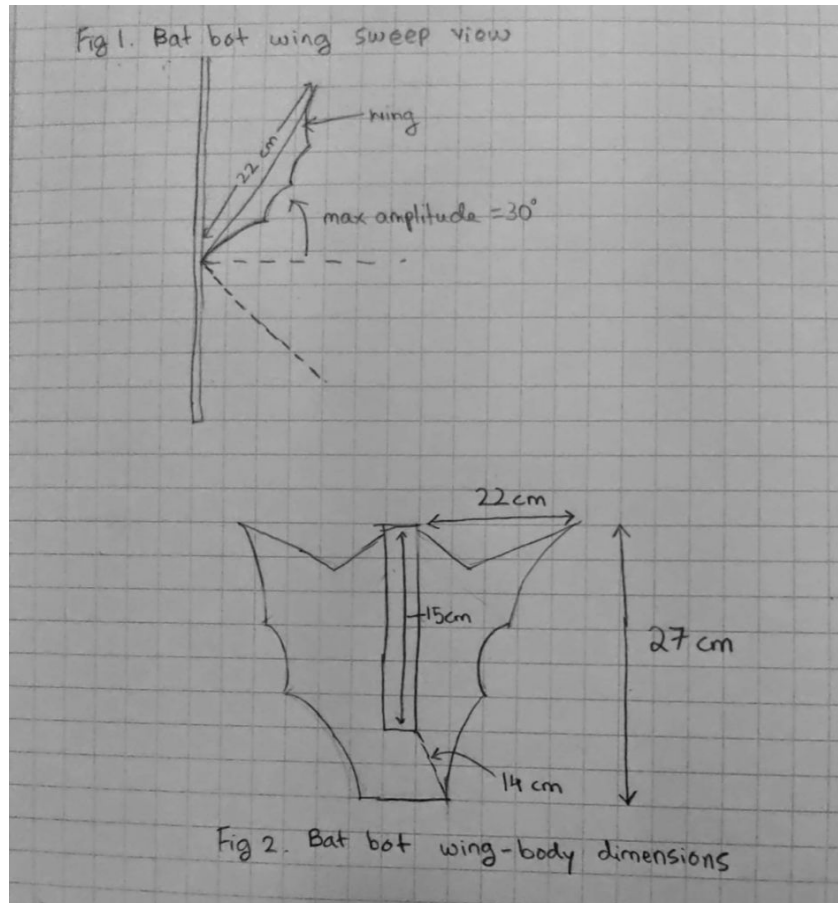 Fig 1. Bat bot wing sweep view
wing
22 cm
max amplitude = 30°
22cm
15cm
27 cm
14 cm
Fig 2. Bat bot wing-body dimensions